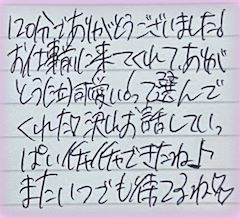 120分でありがとうございました!
お仕事前に来てくれて、ありが
とうた!可愛い!って選んで
くれた♡沢山お話していっ
ぱいイチャイチャできたね♪
またいつでも待ってるね